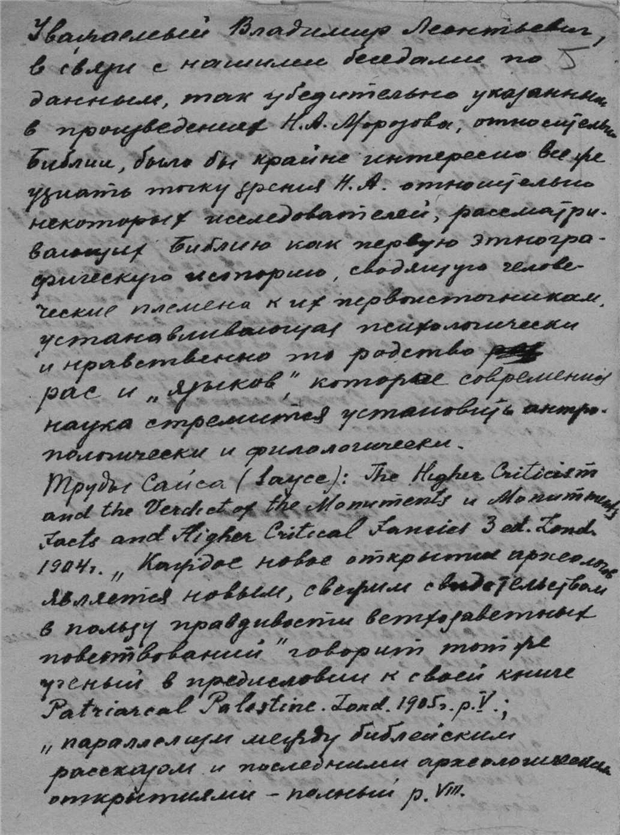 Уважаемый Владимир Леонтьевич,
в связи с нашими беседами по
данным, так убедительно указанным
в произведениях Н.А. Морозова, относительно
Библии, было бы крайне интересно все же
узнать точку зрения Н.А. относительно
некоторых исследователей, рассматри-
вающих Библию как первую этногра-
фическую историю, сводящую челове-
ческие племена к их первоисточникам,
устанавливающая психологически
и нравственно то родство
рас и „языков", которое современная
наука стремится установить антро-
пологически и филологически.
Труды Сайса (Sayce): The Higher Criticism
and the Verdict of the Monuments и Monuments
Facts and Higher Critical Fancies 3 ed. Lond.
1904г. „Каждое новое открытие археологов
является новым, свежим свидетельством
в пользу правдивости ветхозаветных
повествований" говорит тот же
ученый в предисловии к своей книге
Patriarcal Palestine. Lond. 1905г. p.V.;
„параллелизм между библейским
рассказом и последними археологическими
открытиями – полный p. VIII.